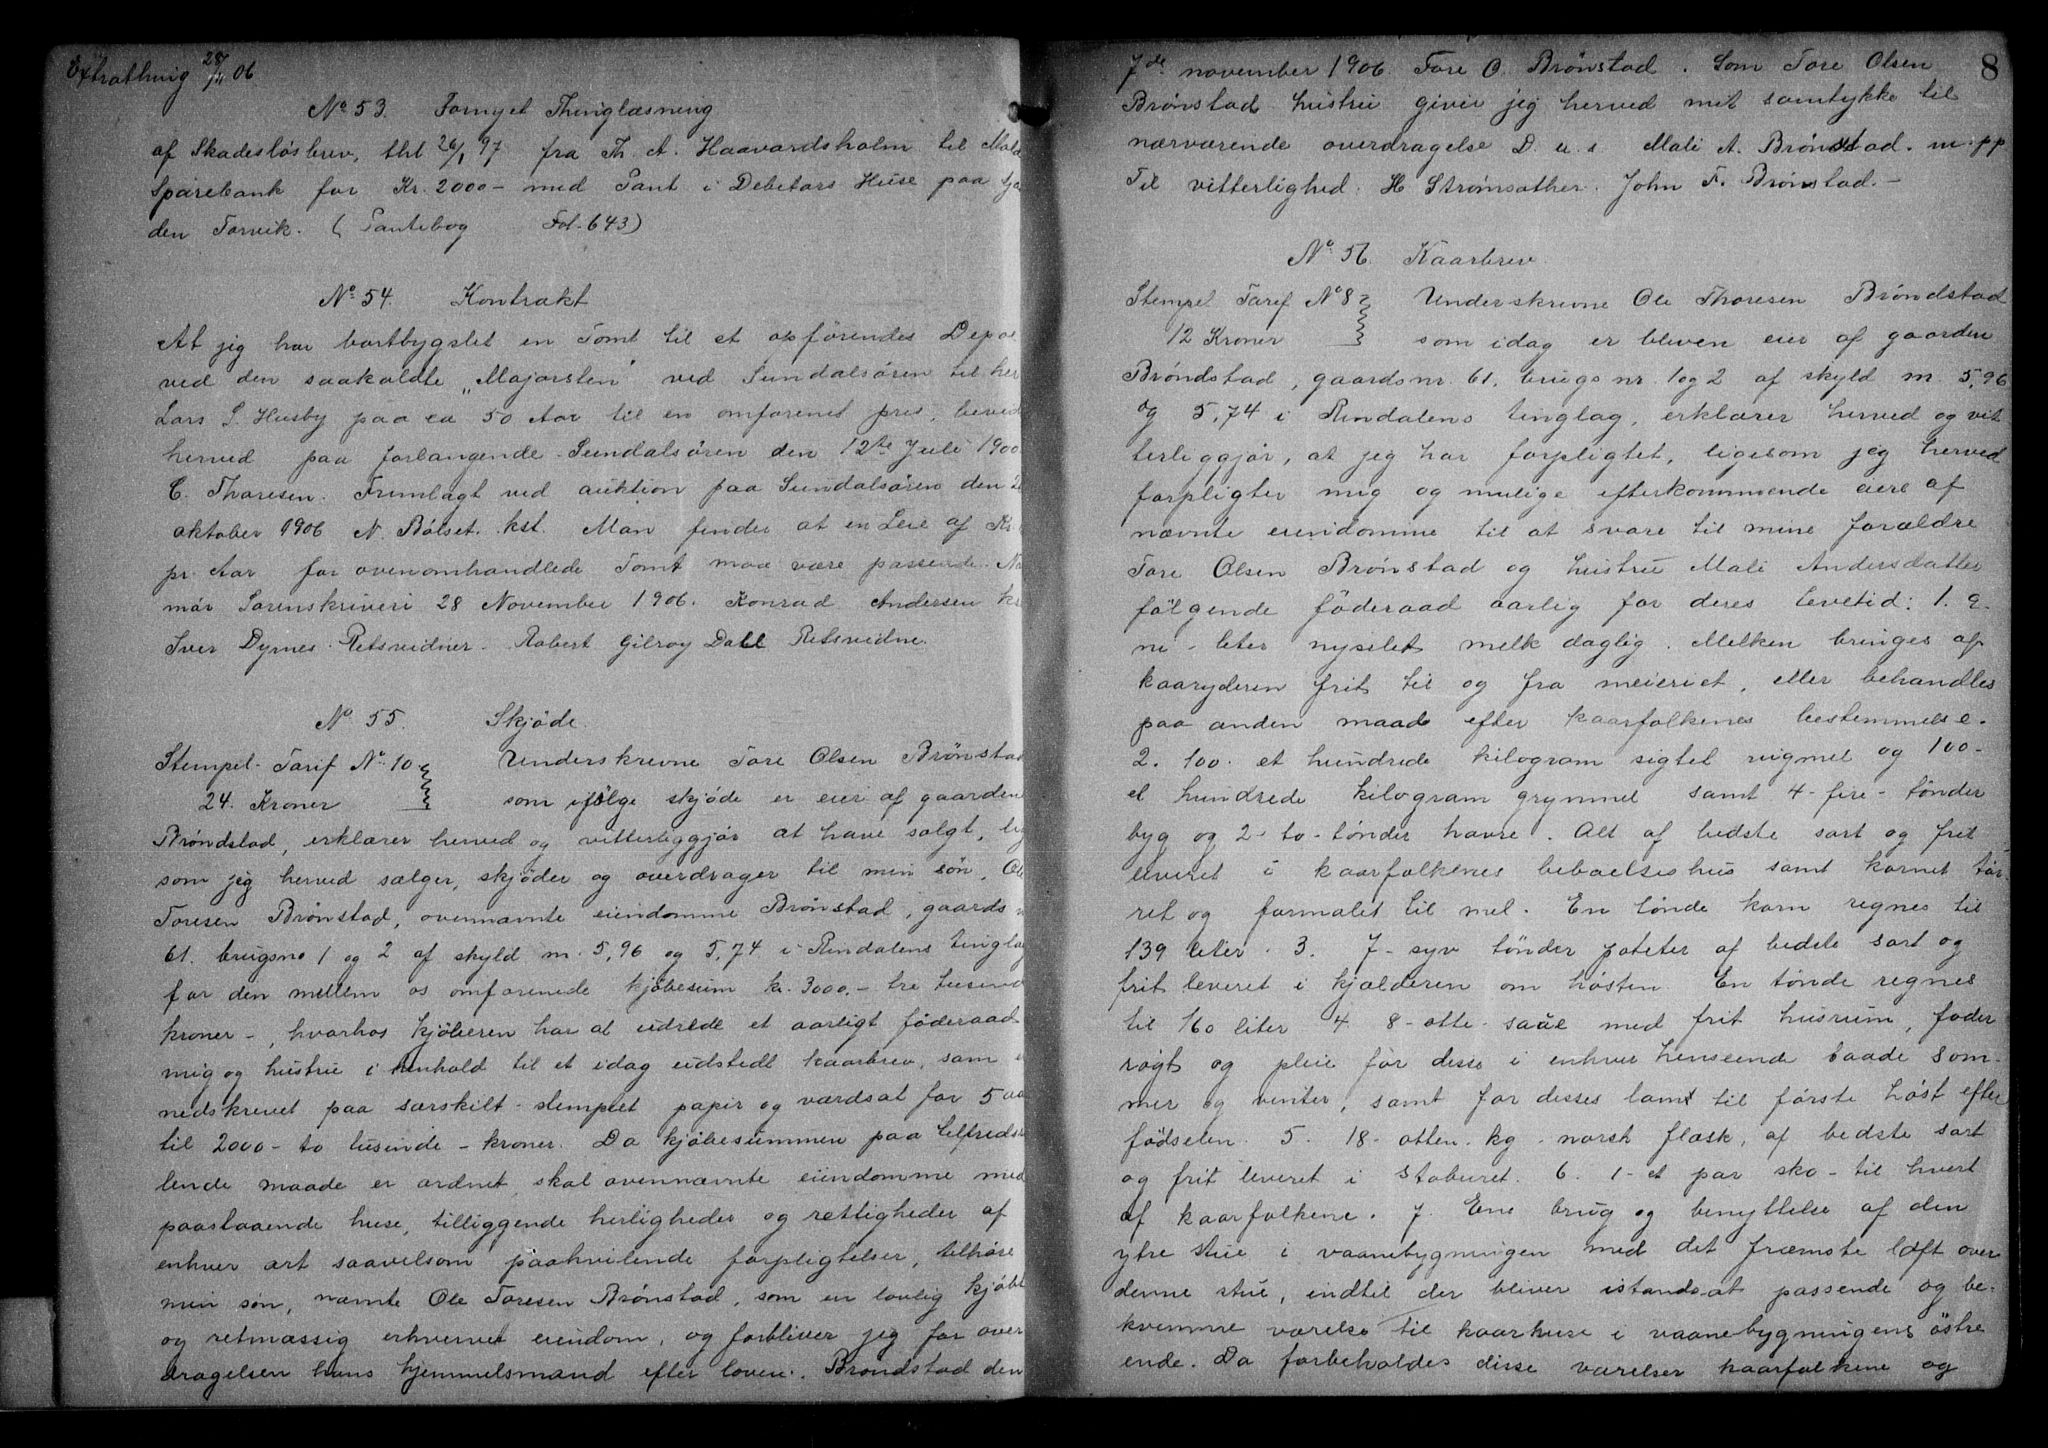 Extrathing 28/11 06
No 53. Fornyet Thinglæsning
af Skadesløsbrev, thl 26/1 97 fra Th. A. Haavardsholm til Mold
Sparebank for Kr. 2000 - med Pant i Debitors Huse paa
den Torvik. (Pantebog Fol. 643)
No 54. Kontrakt
At jeg har bortbygslet en Tomt til et opførendes Depo
ved den saakaldte „Majorsten" ved Sundalsøren til her
Lars S. Husby paa ca 50 Aar til en omforenet pris, bevid
herved paa forlangende. Sundalsøren den 12te Juli 1900
C. Thoresen. Fremlagt ved auktion paa Sundalsøren den 2
oktober 1906 N. Bølset. kst. Man finder at en Leie af Kr
pr. Aar for ovenomhandlede Tomt maa være passende. No
mør Sorenskriveri 28 November 1906. Konrad Andersen
Iver Dyrnes Retsvidner. Robert Gilroy Dall Retsvidne.
No 55. Skjøde.
Stempel-Tarif No 10. Underskrevne Tore Olsen Brønstad
24. Kroner som ifølge skjøde er eier af gaarden
Brøndstad, erklærer herved og vitterliggjør at have solgt, lig
som jeg herved sælger, skjøder og overdrager til min søn, Ole
Toresen Brønstad, ovennævnte eiendomme Brønstad, gaards n
61. brugsno 1 og 2 af skyld m. 5,96 og 5,74 i Rindalens tinglag
for den mellem os omforenede kjøbesum kr. 3000,- tre tusend
kroner -, hvorhos kjøberen har at udrede et aarligt føderaad
mig og hustru i henhold til et idag udstedt kaarbrev, som e
nedskrevet paa særskilt stemplet papir og værdsat for 5 aa
til 2000 - to tusinde - kroner. Da kjøbesummen paa tilfreds
lende maade er ordnet, skal ovennævnte eiendomme med
paastaaende huse, tilliggende herligheder og rettigheder af
enhver art saavelsom paahvilende forpligtelser, tilhøre
min søn, nævnte Ole Toresen Brønstad, som en lovlig kjøbt
og retmæssig erhvervet eiendom, og forbliver jeg for over
dragelsen hans hjemmelsmand efter loven. Brøndstad den
8
7de november 1906. Tore O. Brønstad. Som Tore Olsen
Brønstad hustru giver jeg herved mit samtykke til
nærværende overdragelse D. u. s. Mali A. Brønstad. m. p. p
Til vitterlighed. H Strømsæther. John F. Brønstad. -
No 56. Kaarbrev.
Stempel Tarif No 8 Underskrevne Ole Thoresen Brøndstad
12 Kroner som idag er bleven eier af gaarden
Brøndstad, gaardsnr. 61. brugsnr. 1 og 2 af skyld m. 5,96
og 5,74 i Rindalens tinglag, erklærer herved og vit
terliggjør, at jeg har forpligtet, ligesom jeg herved
forpligter mig og mulige efterkommende eiere af
nævnte eiendomme til at svare til mine forældre
Tore Olsen Brønstad og hustru Mali Andersdatter
følgende føderaad aarlig for deres levetid: 1. 9.
ni - liter nysilet melk daglig. Melken bringes af
kaaryderen frit til og fra meieriet, eller behandles
paa anden maade efter kaarfolkenes bestemmelse.
2. 100. et hundrede kilogram sigtet rugmel og 100-
et hundrede kilogram grynmel samt 4 - fire - tønder
byg og 2 - to - tønder havre. Alt af bedste sort og frit
leveret i kaarfolkenes beboelseshus samt kornet tør-
ret og formalet til mel. En tønde korn regnes til
139 liter. 3. 7 - syv tønder poteter af bedste sort og
frit leveret i kjælderen om høsten. En tønde regnes
til 160 liter 4 8 - otte - saue med frit husrum, foder
røgt og pleie for disse i enhver henseende baade som-
mer og vinter, samt for disses lam til første høst efter
fødselen. 5. 18 - atten - kg. norsk flæsk, af bedste sort
og frit leveret i Staburet. 6. 1 - et par sko - til hvert
af kaarfolkene. 7. Ene brug og benyttelse af den
ytre stue i vaanebygningen med det fræmste loft over
denne stue, indtil der bliver istandsat passende og be-
kvemme værelse til kaarhuse i vaanebygningens østre
ende. Da forbeholdes disse værelser kaarfolkene og